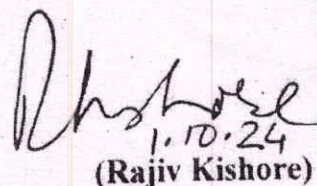 RKishore
1.10.24
(Rajiv Kishore)